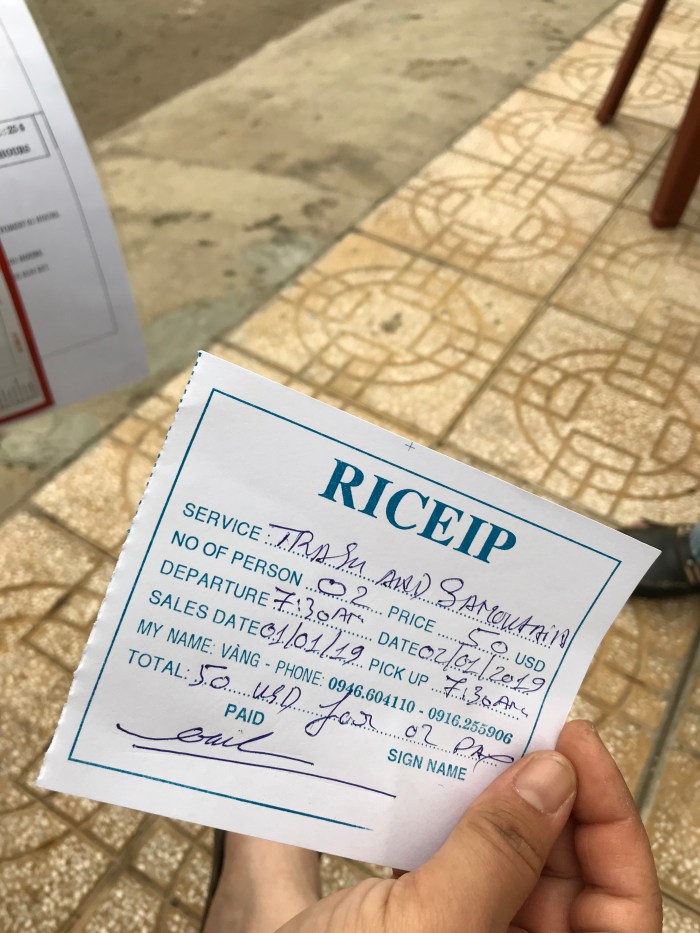 RICEIP
SERVICE: TRASU AND SAMOUTAIN
NO OF PERSON 02 PRICE 50 USD
DEPARTURE 7:30AM DATE 02/01/2019
SALES DATE 01/01/19 PICK UP 7:30AM
MY NAME: VÀNG - PHONE: 0946.604110 - 0916.255906
TOTAL: 50 USD for 02 pax
PAID SIGN NAME